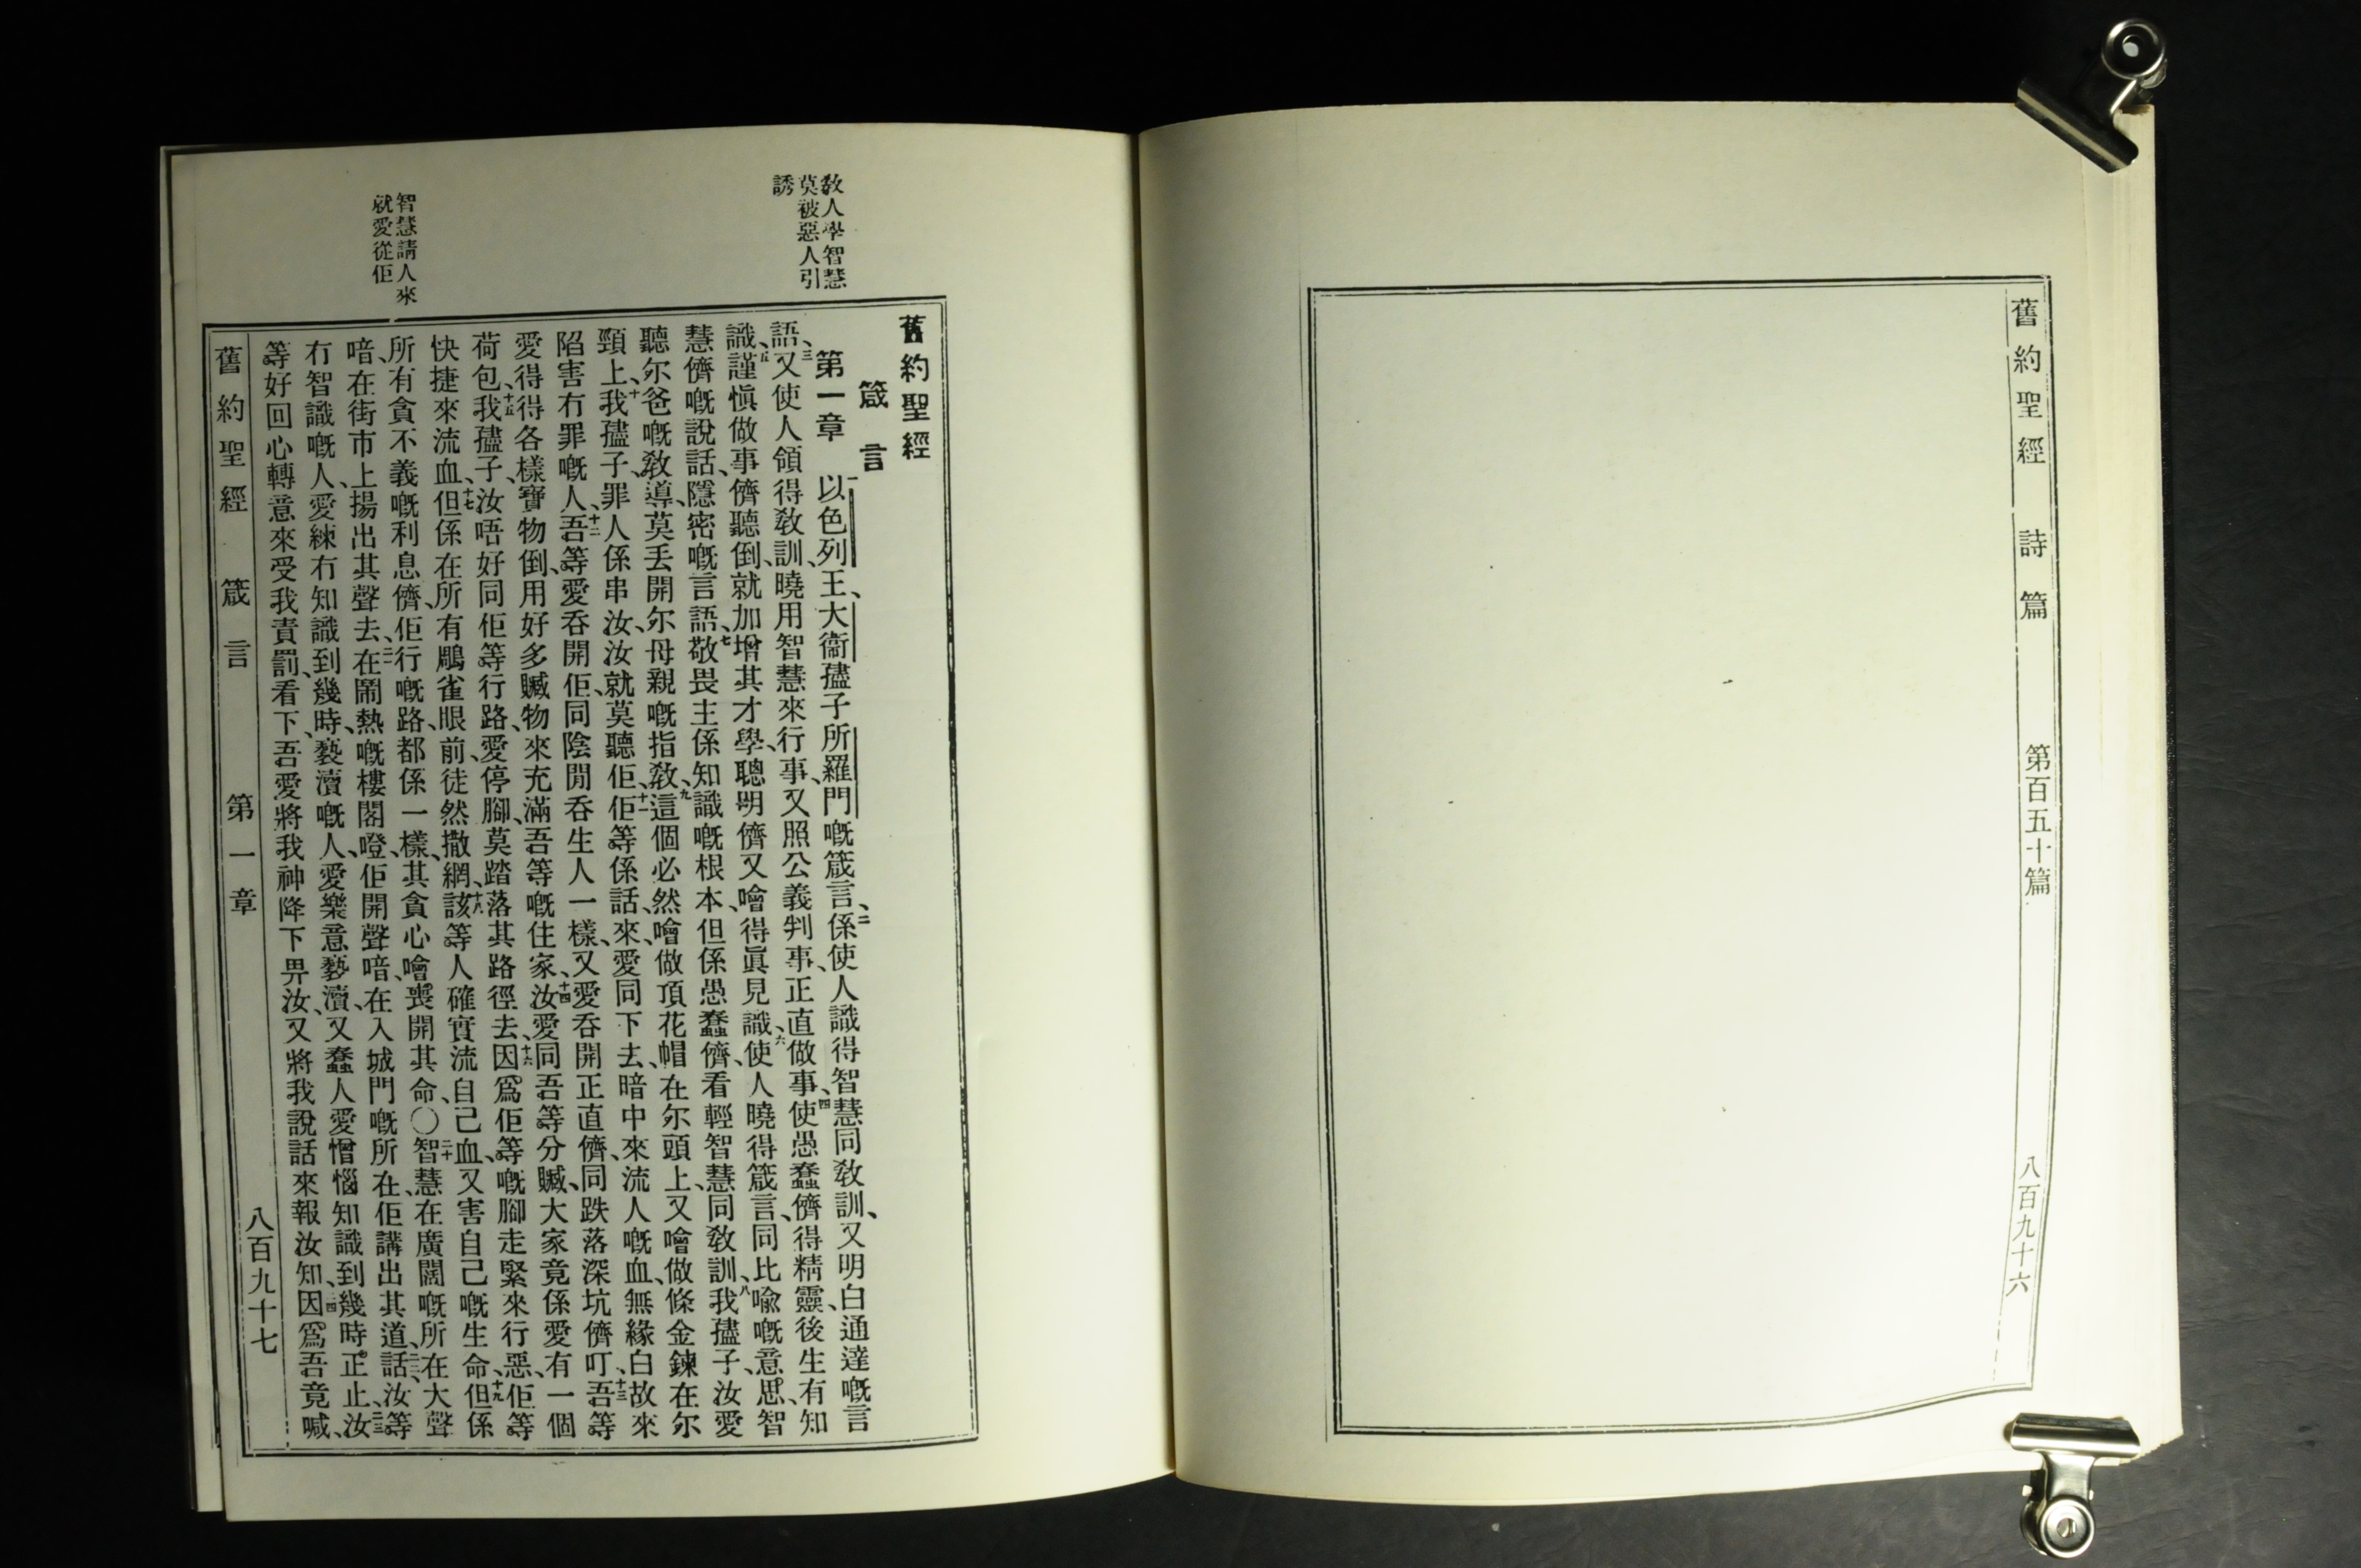 舊約聖經　詩篇　第百五十篇　八百九十六
教人學智慧
莫被惡人引
誘
智慧請人來
就愛從佢
舊約聖經
箴言
第一章　一以色列王、大衞孻子所羅門嘅箴言、二係使人識得智慧同教訓、又明白通達嘅言
語、三又使人領得教訓、曉用智慧來行事、又照公義判事、正直做事、四使愚蠢儕得精靈、後生有知
識、五謹愼做事儕聽倒、就加增其才學、聰明儕又噲得眞見識、六使人曉得箴言、同比喩嘅意思、智
慧儕嘅說話、隱密嘅言語、七敬畏主係知識嘅根本、但係愚蠢儕、看輕智慧同教訓、八我孻子、汝愛
聽尔爸嘅教導、莫丢開尔母親嘅指教、九這個必然噲做頂花帽在尔頭上、又噲做條金鍊在尔
頸上、十我孻子、罪人係串汝、汝就莫聽佢、十一佢等係話、來、愛同下去、暗中來流人嘅血、無緣白故來
陷害冇罪嘅人、十二吾等愛吞開佢、同陰間吞生人一樣、又愛吞開正直儕、同跌落深坑儕吖、十三吾等
愛得得各樣寶物倒、用好多贓物來充滿吾等嘅住家、十四汝愛同吾等分贓、大家竟係愛有一個
荷包、十五我孻子、汝唔好同佢等行路、愛停脚、莫踏落其路徑去、十六因爲佢等嘅脚走緊來行惡、佢等
快捷來流血、十七但係在所有鵰雀眼前、徒然撒網、十八該等人確實流自己血、又害自己嘅生命、十九但係
所有貪不義嘅利息儕、佢行嘅路、都係一樣、其貪心噲喪開其命、〇二十智慧在廣闊嘅所在大聲
喑、在街市上揚出其聲去、二一在鬧熱嘅樓閣嶝、佢開聲喑、在入城門嘅所在、佢講出其道話、二二汝等
冇智識嘅人、愛練冇知識到幾時、褻瀆嘅人、愛樂意褻瀆、又蠢人愛憎惱知識、到幾時正止、二三汝
等好回心轉意來受我責罰、看下、吾愛將我神降下畀汝、又將我說話來報汝知、二四因爲吾竟喊、
舊約聖經　箴言　第一章　八百九十七